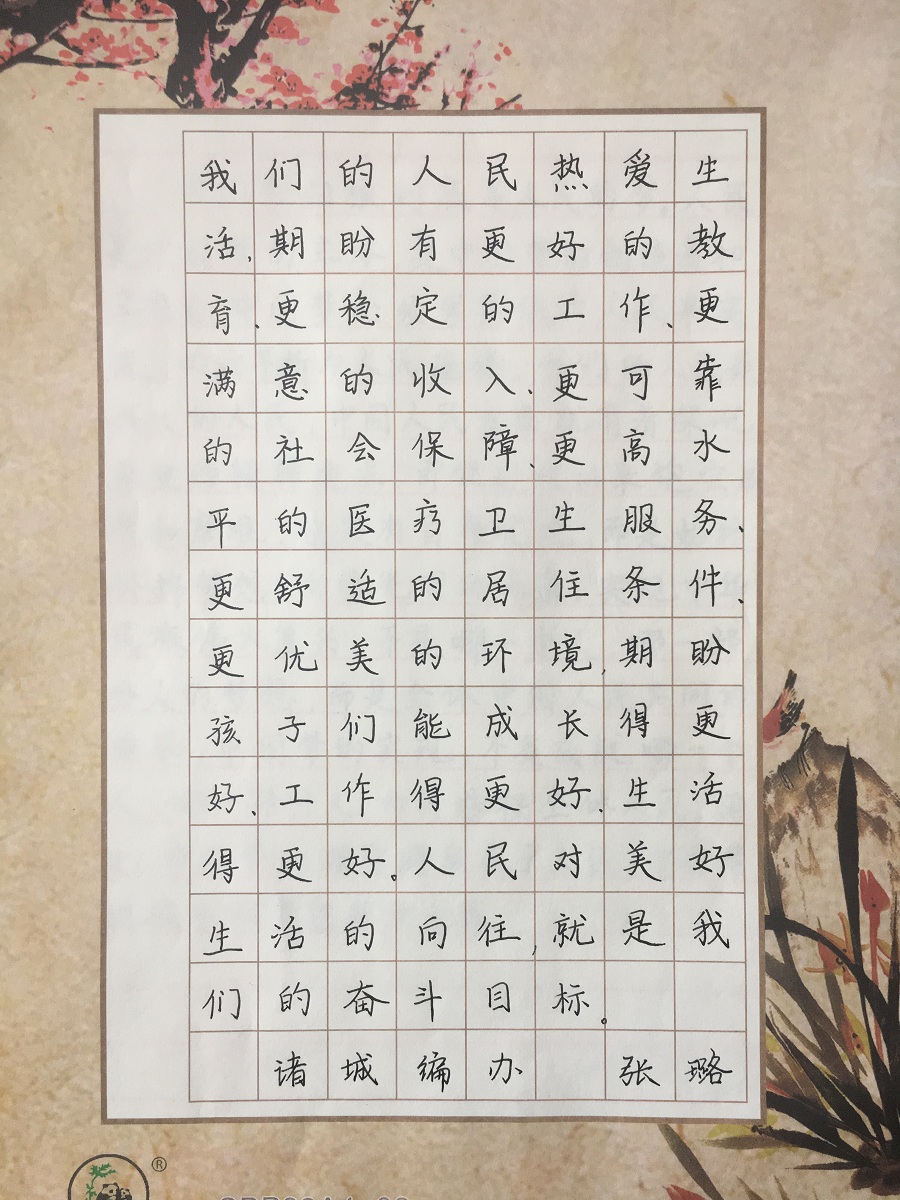 我们的人民热爱生
活，期盼有更好的教
育、更稳定的工作、更
满意的收入、更可靠
的社会保障、更高水
平的医疗卫生服务、
更舒适的居住条件、
更优美的环境，期盼
孩子们能成长得更
好、工作得更好、生活
得更好。人民对美好
生活的向往，就是我
们的奋斗目标。
诸城编办 张璐
®